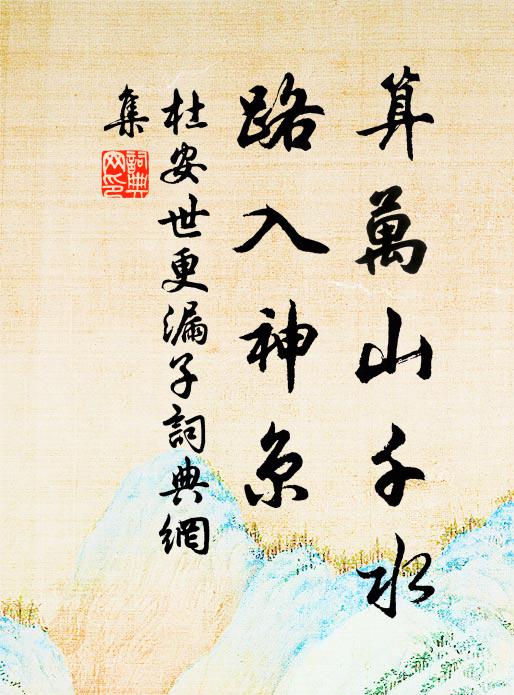 算萬山千水
路入神京
杜安世更漏子詞典網
集
詞典
网印